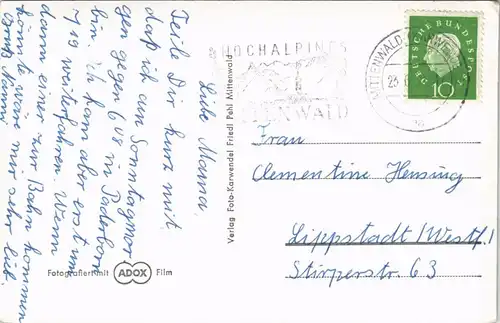 Liebe Mama,
Teile Dir kurz mit
daß ich am Sonntagmor-
gen gegen 6 08 in Paderborn
bin. Ich kann aber erst um
7 19 weiterfahren. Wenn
dann einer zur Bahn kommen
könnte wäre mir sehr lieb.
Gruß Nanni
Fotografiert mit ADOX Film
Verlag Foto-Karwendel Friedl Pehl Mittenwald
HOCHALPINES
MITTENWALD
DEUTSCHE BUNDESPOST
10
Frau
Clementine Hensing
Lippstadt/Westf.!
Stirperstr. 63